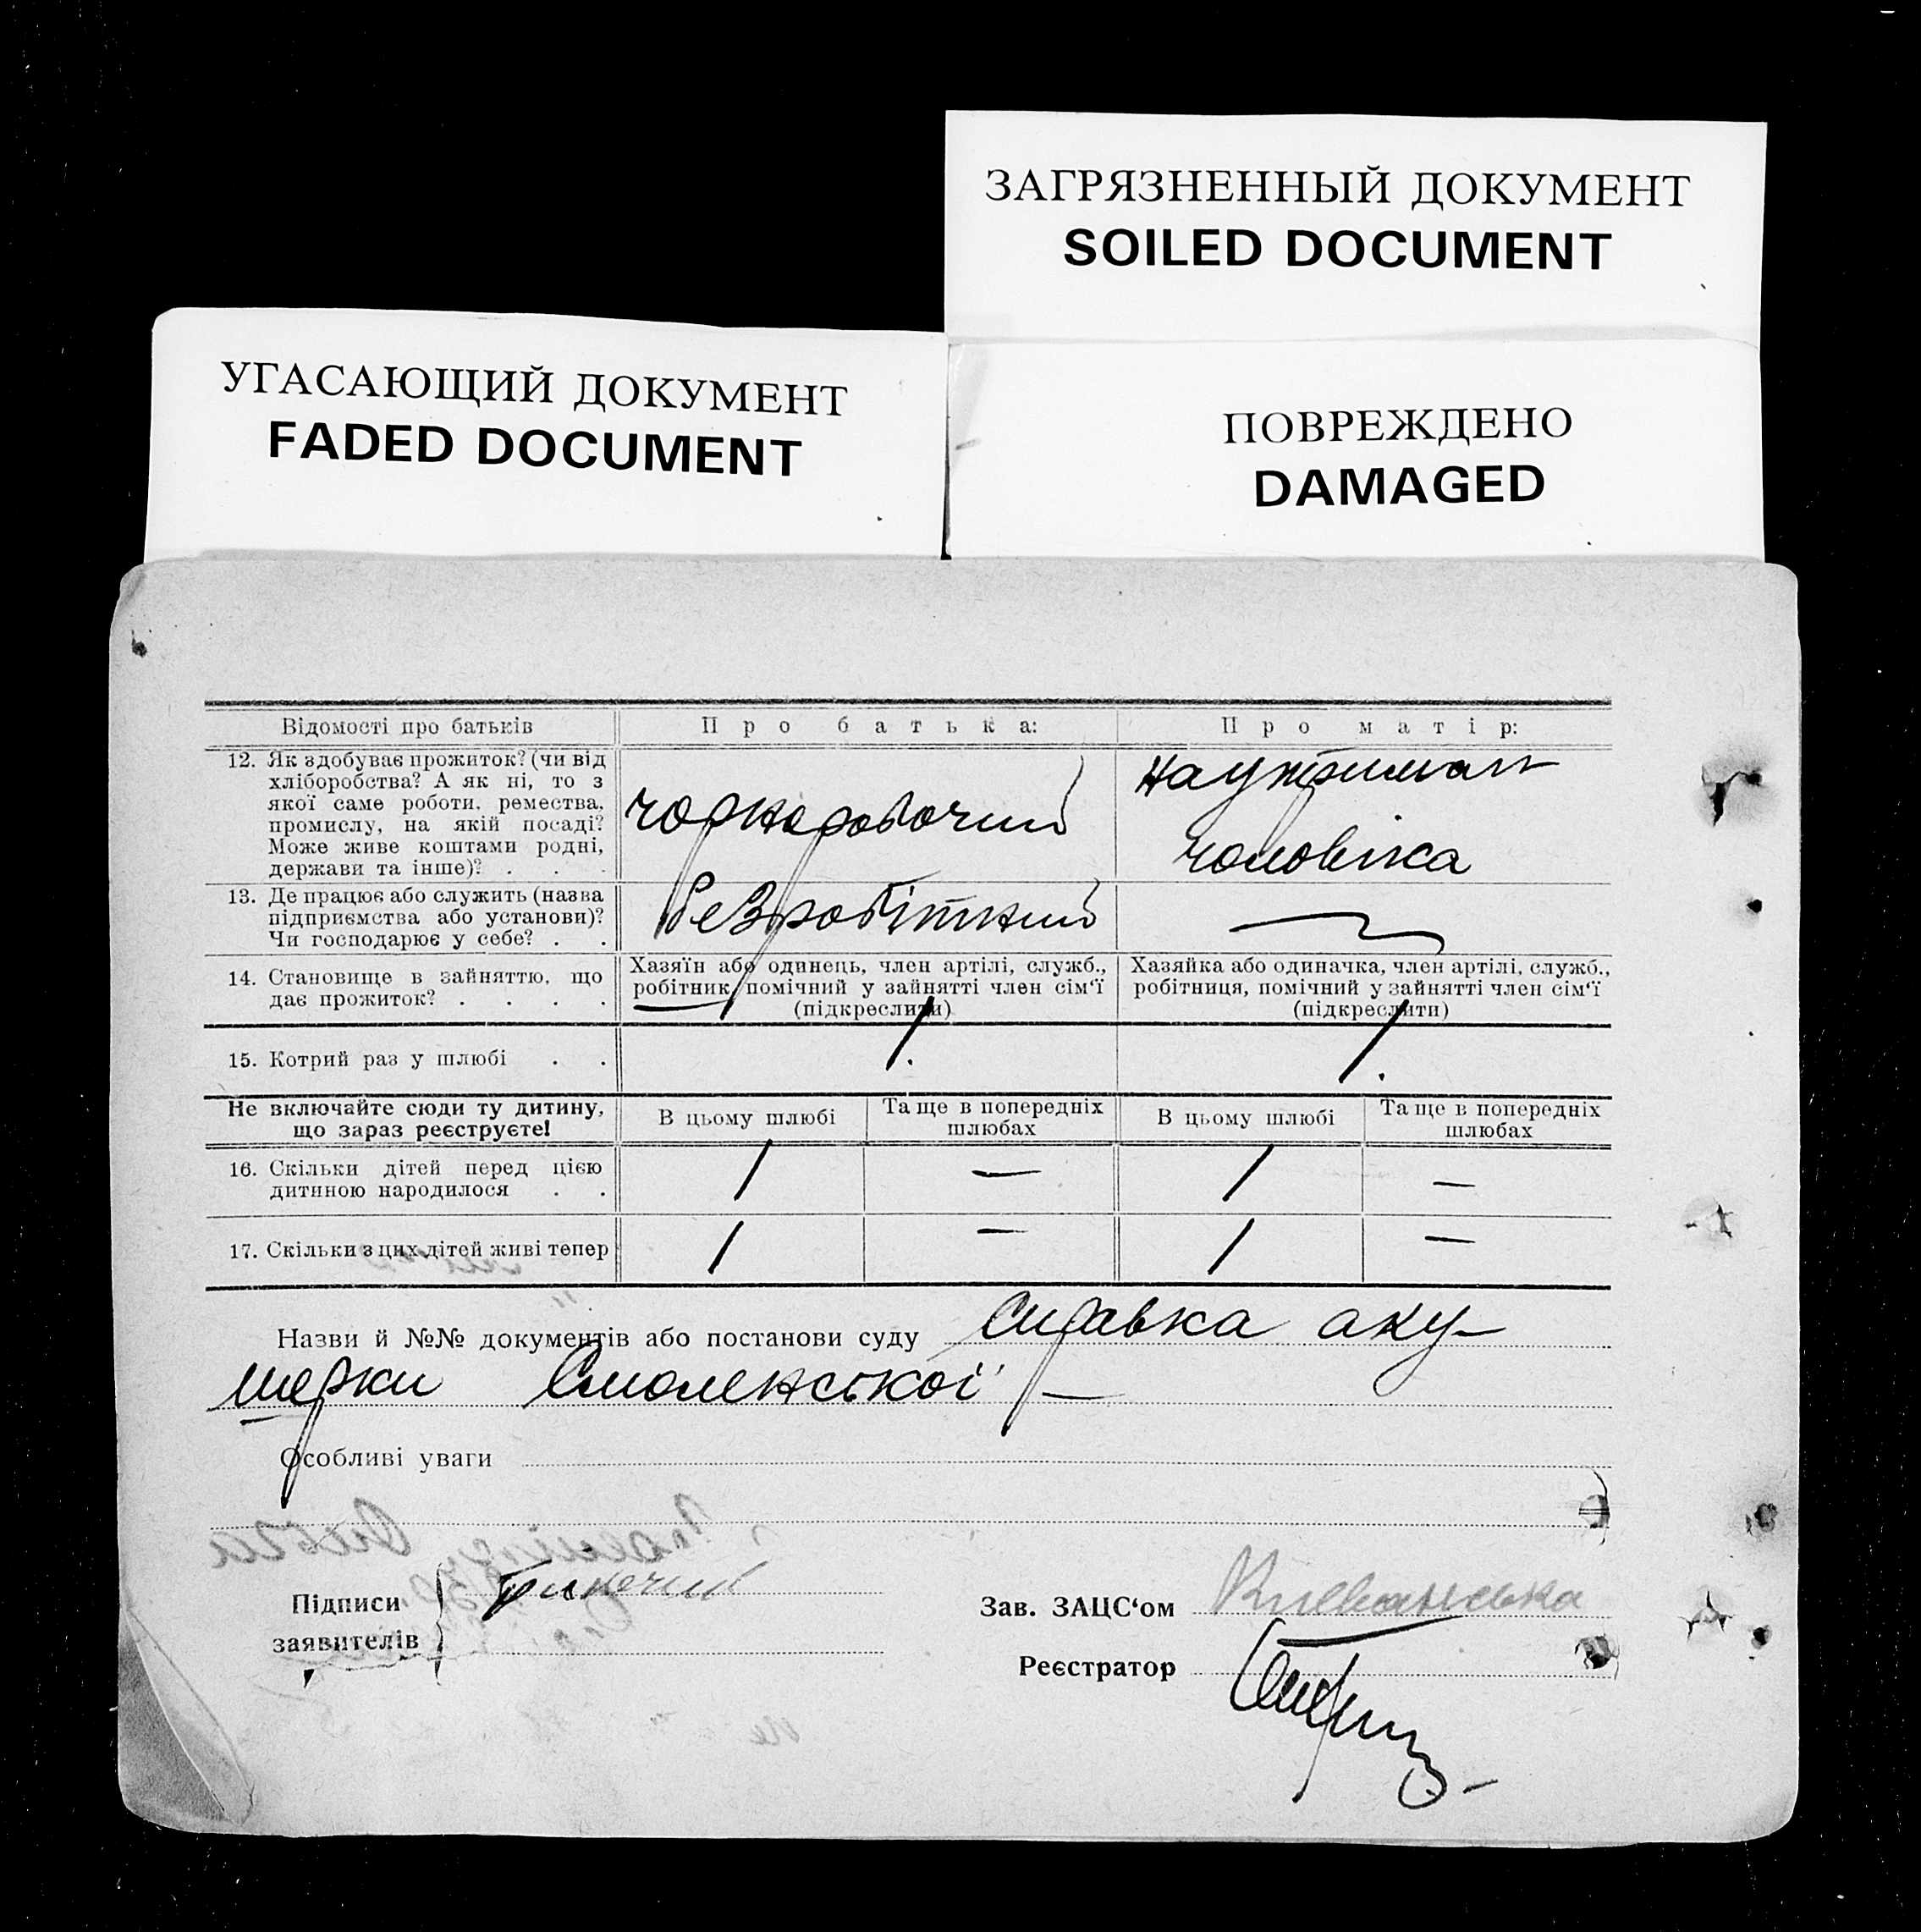 ЗАГРЯЗНЕННЫЙ ДОКУМЕНТ
SOILED DOCUMENT
УГАСАЮЩИЙ ДОКУМЕНТ
FADED DOCUMENT
ПОВРЕЖДЕНО
DAMAGED
Відомості про батьків
Про батька:
Про матір:
12. Як здобуває прожиток? (чи від
хліборобства? А як ні, то з
якої саме роботи, ремества,
промислу, на якій посаді?
Може живе коштами родні,
держави та інше)? . . .
чорноробочий
на утриман
чоловіка
13. Де працює або служить (назва
підприємства або установи)?
Чи господарює у себе? . .
безробітний
14. Становище в зайняттю, що
дає прожиток? . . . .
Хазяїн або одинець, член артілі, служб.,
робітник, помічний у зайнятті член сім'ї
(підкреслити)
Хазяйка або одиначка, член артілі, служб.,
робітниця, помічний у зайнятті член сім'ї
(підкреслити)
15. Котрий раз у шлюбі . .
1.
1.
Не включайте сюди ту дитину,
що зараз реєструєте!
В цьому шлюбі
Та ще в попередніх
шлюбах
В цьому шлюбі
Та ще в попередніх
шлюбах
16. Скільки дітей перед цією
дитиною народилося . .
1 — 1 —
17. Скільки з цих дітей живі тепер
1 — 1 —
Назви й №№ документів або постанови суду Справка аку-
шерки Смоленської —
Особливі уваги
Підписи
заявителів
Зав. ЗАЦС'ом
Реєстратор